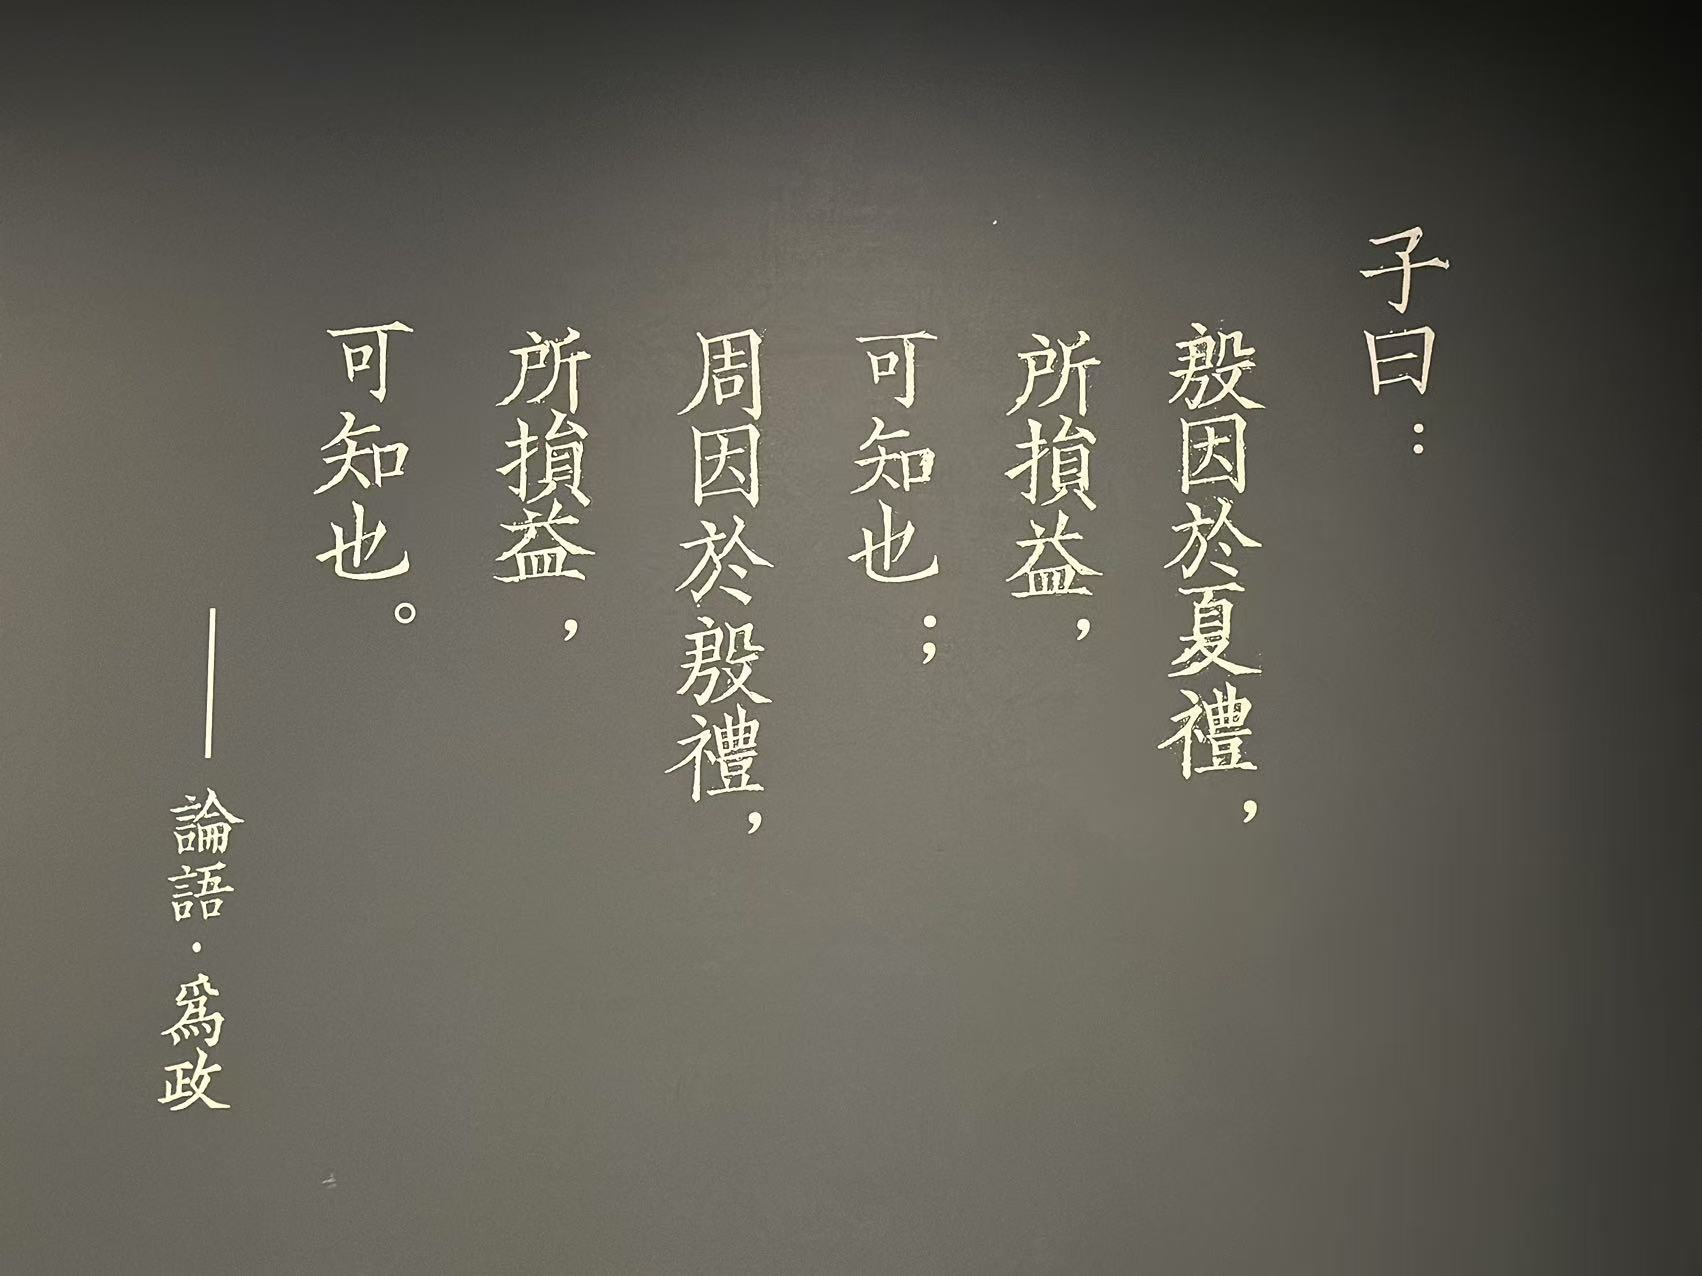 子曰：
殷因於夏禮，
所損益，
可知也；
周因於殷禮，
所損益，
可知也。
——論語·爲政